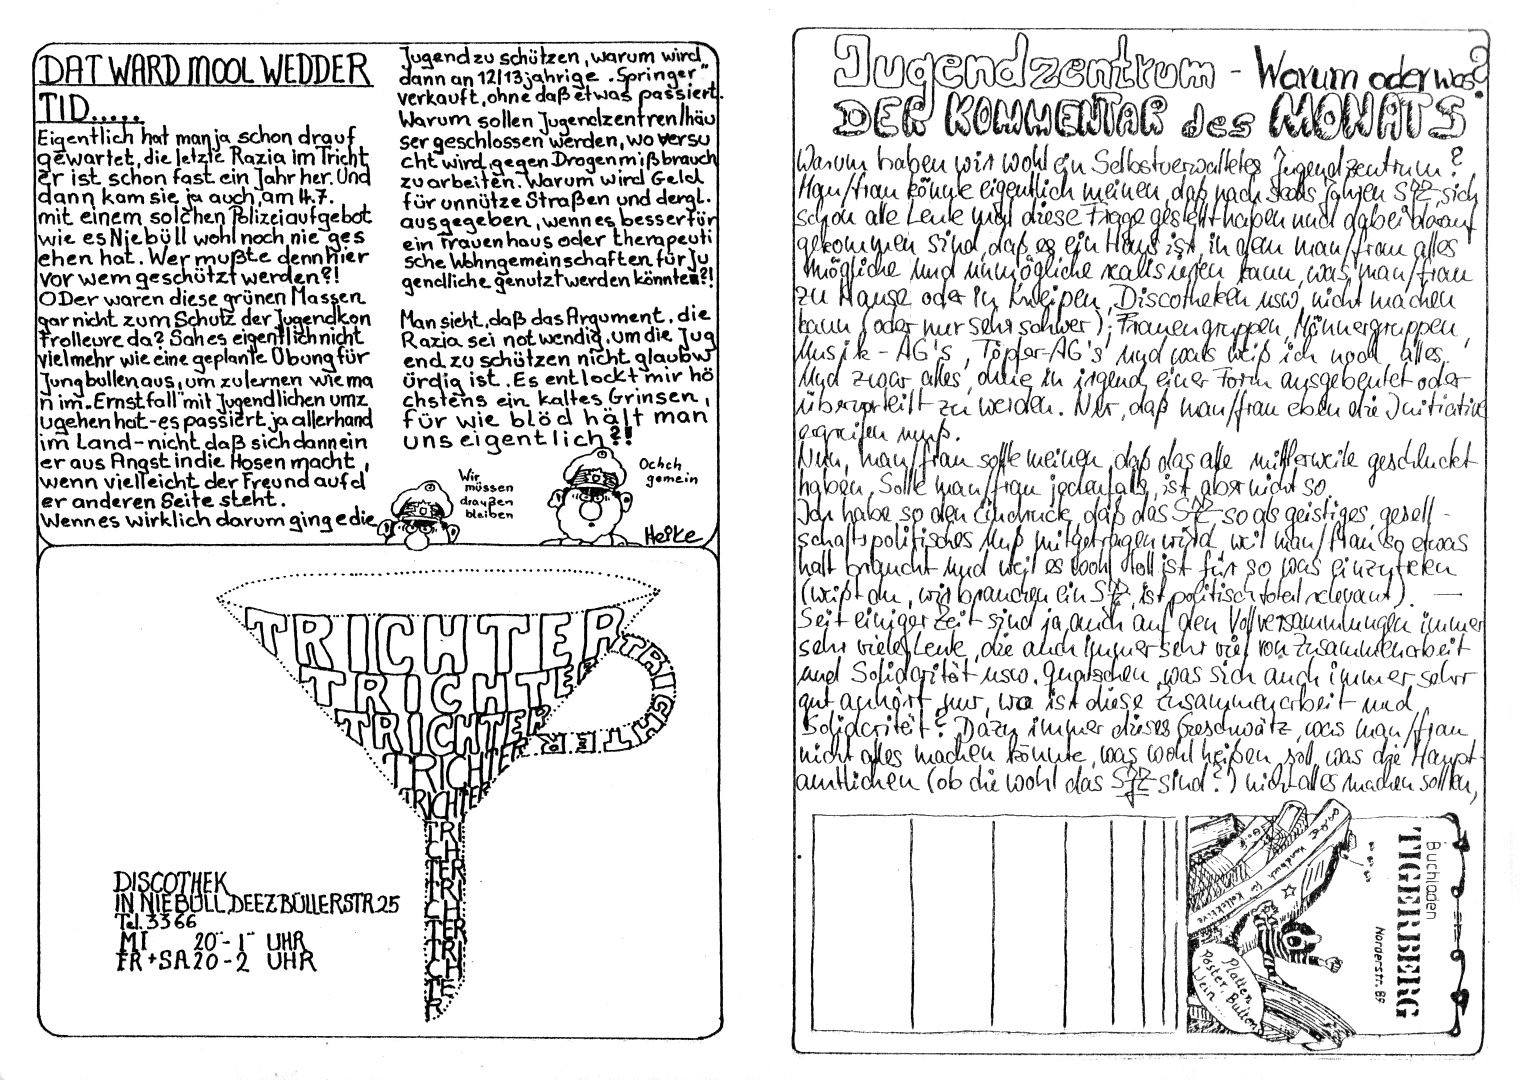 DAT WARD MOOL WEDDER
TID.....
Eigentlich hat man ja schon drauf
gewartet, die letzte Razia im Tricht
er ist schon fast ein Jahr her. Und
dann kam sie ja auch, am 4.7.
mit einem solchen Polizeiaufgebot
wie es Niebüll wohl noch nie ges
ehen hat. Wer mußte denn hier
vor wem geschützt werden?!
ODer waren diese grünen Massen
gar nicht zum Schutz der Jugendkon
trolleure da? Sah es eigentlich nicht
vielmehr wie eine geplante Übung für
Jungbullen aus, um zu lernen wie ma
n im "Ernstfall" mit Jugendlichen umz
ugehen hat - es passiert ja allerhand
im Land - nicht daß sich dann ein
er aus Angst in die Hosen macht,
wenn vielleicht der Freund auf d
er anderen Seite steht.
Wenn es wirklich darum ginge die
Jugend zu schützen, warum wird
dann an 12/13 jährige "Springer"
verkauft, ohne daß etwas passiert.
Warum sollen Jugendzentren/häu
ser geschlossen werden, wo versu
cht wird, gegen Drogenmißbrauch
zu arbeiten. Warum wird Geld
für unnütze Straßen und dergl.
ausgegeben, wenn es besser für
ein Frauenhaus oder therapeuti
sche Wohngemeinschaften für Ju
gendliche genutzt werden könnte?!
Man sieht, daß das Argument, die
Razia sei notwendig, um die Jug
end zu schützen nicht glaubw
ürdig ist. Es entlockt mir hö
chstens ein kaltes Grinsen,
für wie blöd hält man
uns eigentlich?!
Wir
müssen
draußen
bleiben
Ochch
gemein
Heike
TRICHTER
TRICHTER
TRICHTER
TRICHTER
TRICHTER
TRICHTER
TRI
CH
TER
TRI
CH
TER
TRI
CH
TE
R
DISCOTHEK
IN NIEBÜLL, DEEZBÜLLERSTR 25
Tel. 3366
MI 20 - 1 UHR
FR + SA 20 - 2 UHR
Jugendzentrum - Warum oder was?
DER KOMMENTAR des MONATS
Warum haben wir wohl ein Selbstverwaltetes Jugendzentrum?
Man/frau könnte eigentlich meinen, daß nach sechs Jahren SJZ, sich
schon alle Leute mal diese Frage gestellt haben und dabei darauf
gekommen sind, daß es ein Haus ist, in dem man/frau alles
mögliche und unmögliche realisieren kann, was man/frau
zu Hause oder in Kneipen, Discotheken usw. nicht machen
kann (oder nur sehr schwer); Frauengruppen, Männergruppen,
Musik-AG's, Töpfer-AG's und was weiß ich noch alles.
Und zwar alles, ohne in irgend einer Form ausgebeutet oder
übervorteilt zu werden. Nur, daß man/frau eben die Initiative
ergreifen muß.
Nun, man/frau sollte meinen, daß das alle mittlerweile geschluckt
haben. Sollte man/frau jedenfalls, ist aber nicht so.
Ich habe so den Eindruck, daß das SJZ so als geistiges, gesell-
schaftspolitisches Muß mitgetragen wird, weil man/frau so etwas
halt braucht und weil es wohl toll ist für so was einzutreten
(weißt du, wir brauchen ein SJZ, ist politisch total relevant). —
Seit einiger Zeit sind ja auch auf den Vollversammlungen immer
sehr viele Leute, die auch immer sehr viel von Zusammenarbeit
und Solidarität usw. quatschen, was sich auch immer sehr
gut anhört, nur, wo ist diese Zusammenarbeit und
Solidarität? Dazu immer dieses Geschwätz, was man/frau
nicht alles machen könnte, was wohl heißen soll, was die Haupt-
amtlichen (ob die wohl das SJZ sind?) nicht alles machen sollten,
Buchladen
TIGERBERG
Norderstr. 89
Handbuch für Kollektive
Platten
Poster, Button
Wein...